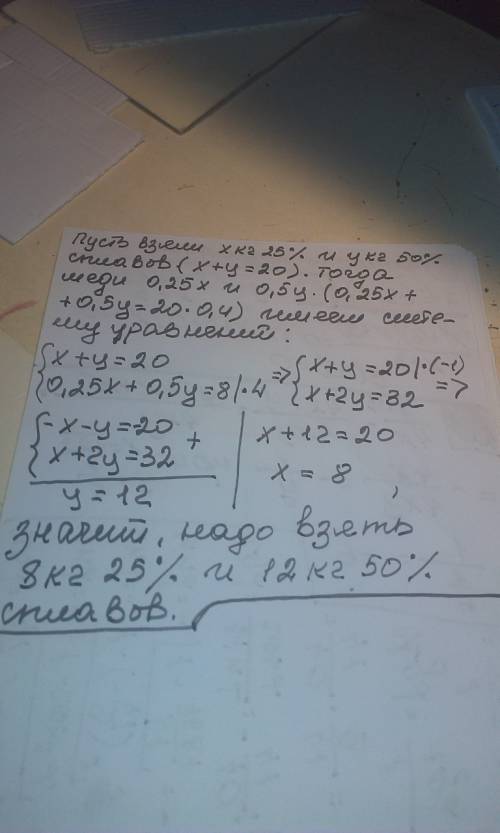 Пусть взяли x кг 25% и y кг 50%
сплавов (x+y=20). Тогда
меди 0,25x и 0,5y. (0,25x+
+0,5y=20·0,4) имеем систе-
му уравнений:
{x+y=20
{0,25x+0,5y=8|·4
=> {x+y=20|·(-1)
{x+2y=32 =>
{-x-y=-20
{x+2y=32 +
y=12
x+12=20
x = 8,
значит, надо взять
8кг 25% и 12кг 50%
сплавов.